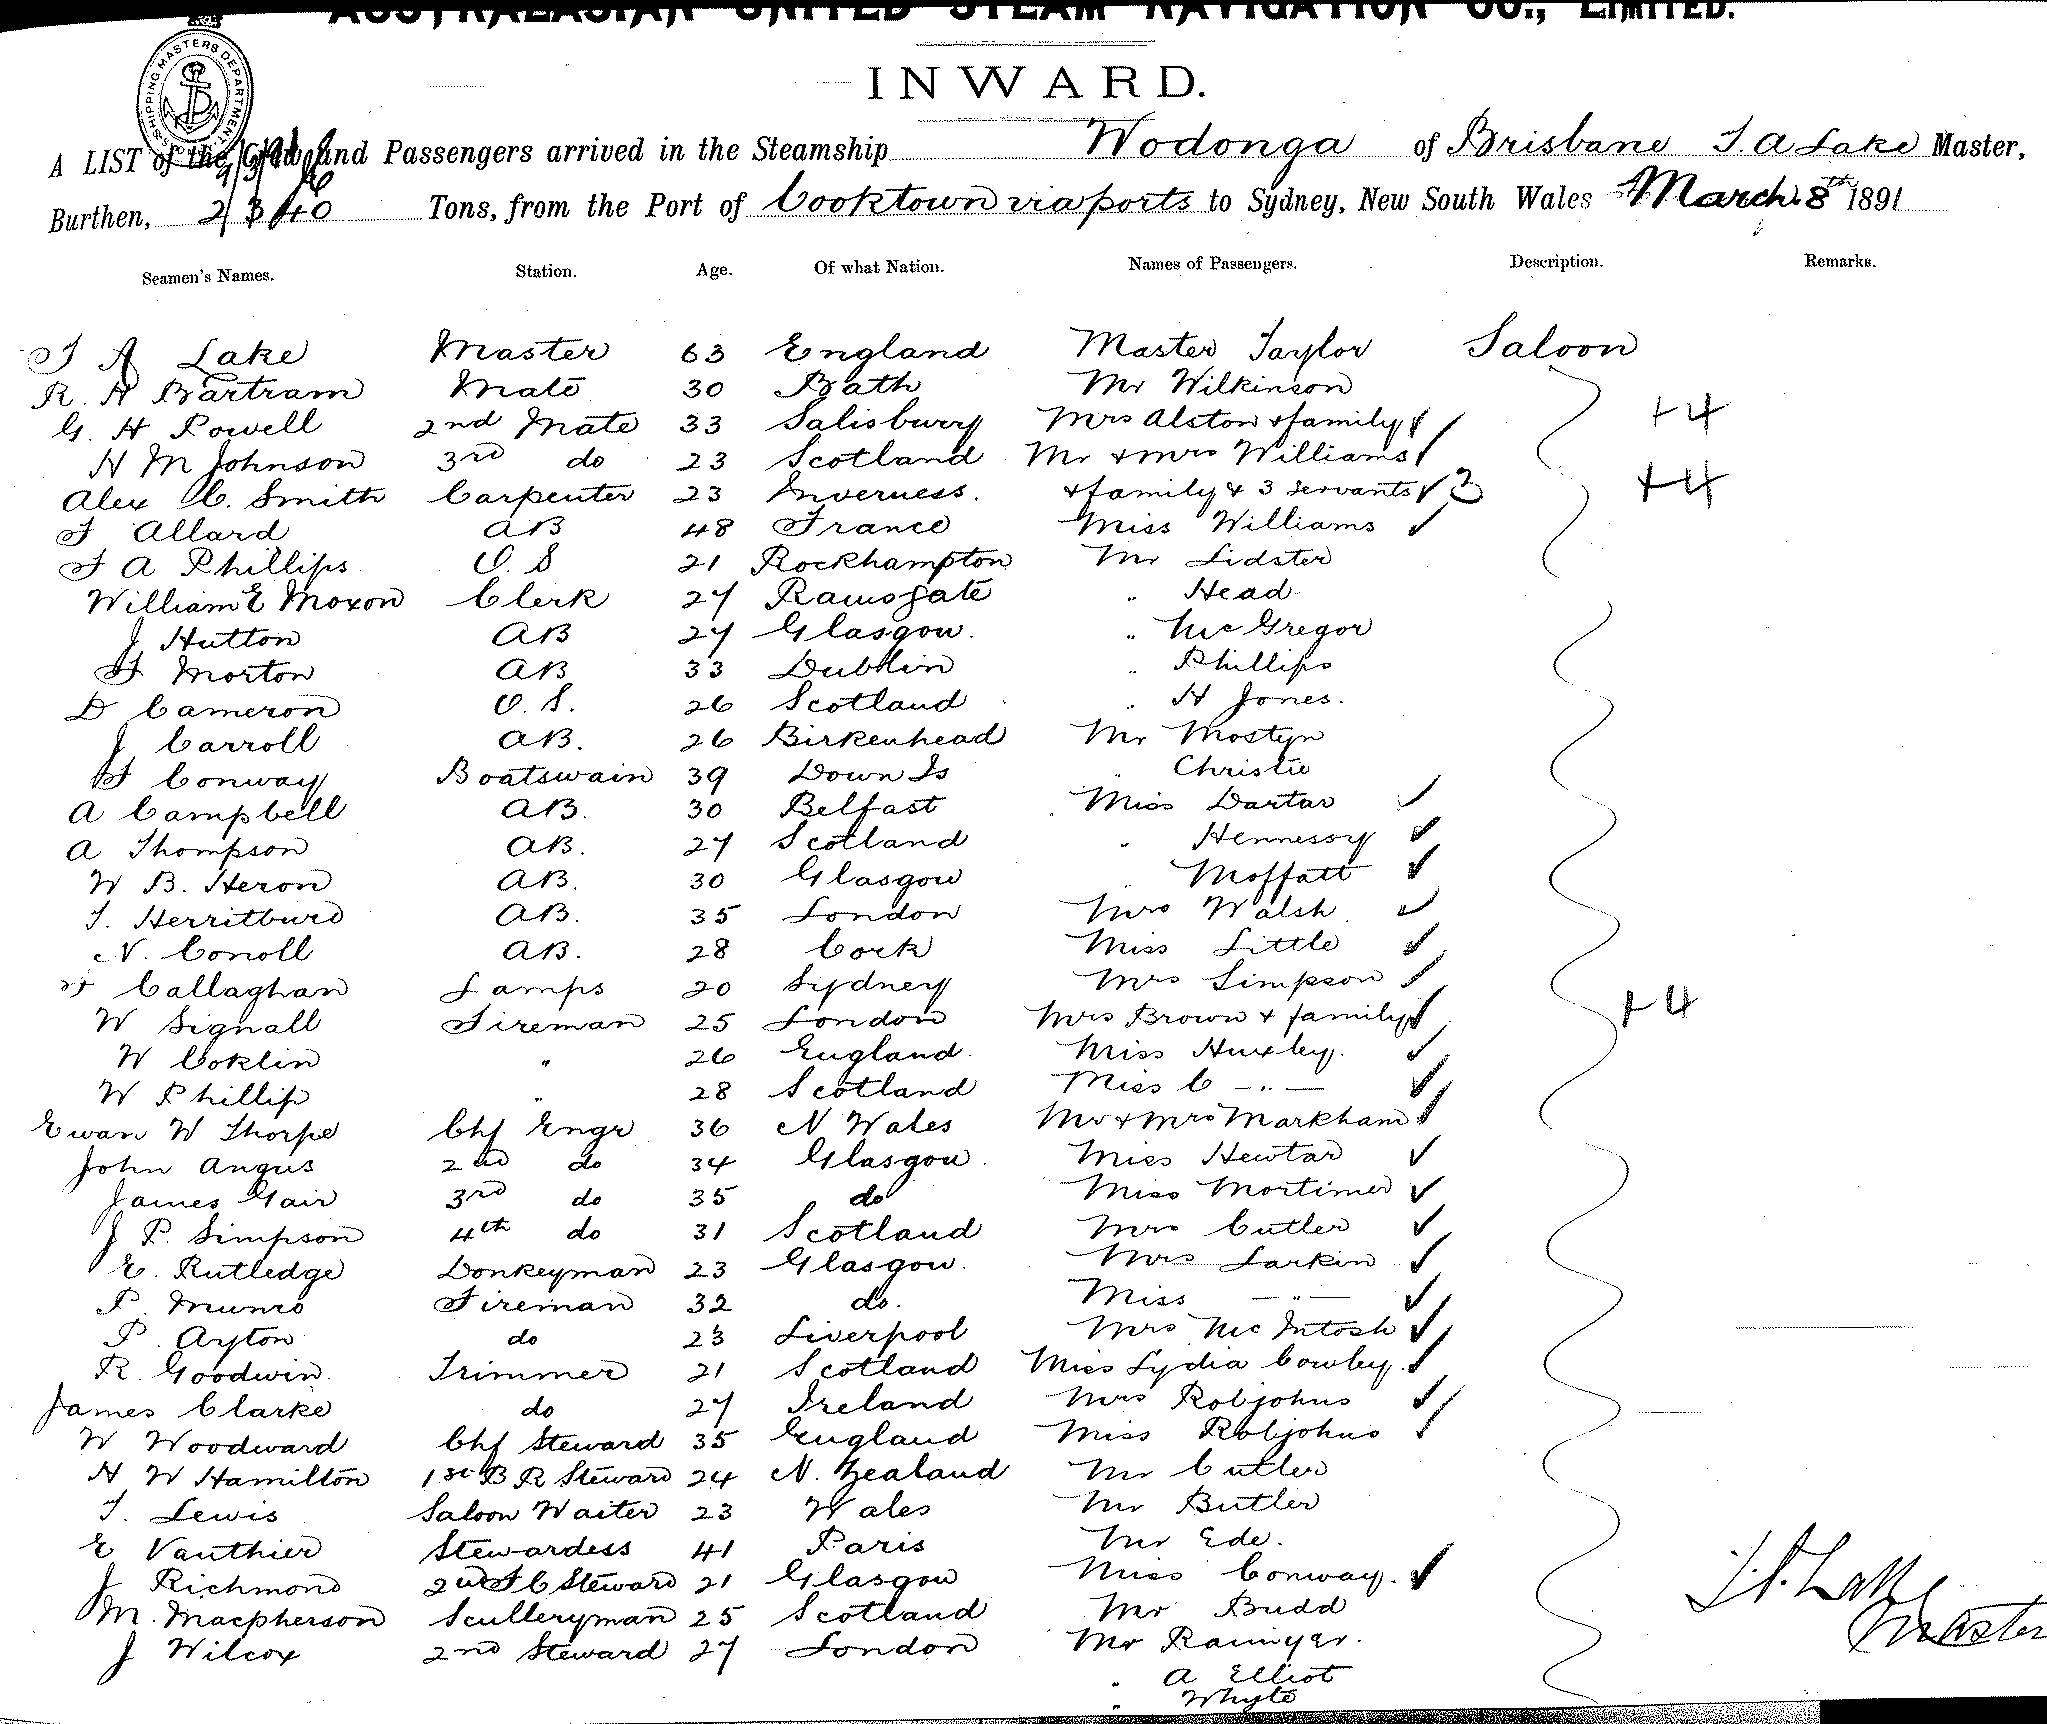 AUSTRALASIAN UNITED STEAM NAVIGATION CO., LIMITED.
SHIPPING MASTERS DEPARTMENT
INWARD.
A LIST of the Crew and Passengers arrived in the Steamship Wodonga of Brisbane T. A Lake Master,
Burthen, 2340 Tons, from the Port of Cooktown via ports to Sydney, New South Wales March 8th 1891
Seamen's Names. Station. Age. Of what Nation. Names of Passengers. Description. Remarks.
T A Lake Master 63 England Master Taylor Saloon
R. H Bartram Mate 30 Bath Mr Wilkinson
G. H Powell 2nd Mate 33 Salisbury Mrs Alston & family +4
H M Johnson 3rd do 23 Scotland Mr & Mrs Williams
Alex C. Smith Carpenter 23 Inverness. & family & 3 servants 3 +4
F Allard AB 48 France Miss Williams
F A Phillips O. S 21 Rockhampton Mr Lidster
William E Moxon Clerk 27 Ramsgate " Head
J Hutton AB 27 Glasgow. " McGregor
F Morton AB 33 Dublin " Phillips
D Cameron O. S. 26 Scotland " H Jones.
J Carroll AB. 26 Birkenhead Mr Mostyn
F Conway Boatswain 39 Down Is " Christie
A Campbell AB. 30 Belfast Miss Dartar
A Thompson AB. 27 Scotland " Hennessy
W B. Heron AB. 30 Glasgow " Moffatt
T. Herritburd AB. 35 London Mrs Walsh
N. Conoll AB. 28 Cork Miss Little
F Callaghan Lamps 20 Sydney Mrs Simpson
W Signall Fireman 25 London Mrs Brown & family +4
W Coklin " 26 England. Miss Huxley.
W Phillip " 28 Scotland Miss C — " —
Ewan W Thorpe Chf Engr 36 N Wales Mr & Mrs Markham
John Angus 2nd do 34 Glasgow. Miss Hewtar
James Gair 3rd do 35 do Miss Mortimer
J P. Simpson 4th do 31 Scotland Mrs Cutler
E. Rutledge Donkeyman 23 Glasgow. Mrs Larkin
P. Munro Fireman 32 do. Miss — " —
P. Ayton do 23 Liverpool Mrs McIntosh
R. Goodwin. Trimmer 21 Scotland Miss Lydia Cowley.
James Clarke do 27 Ireland Mrs Robjohns
W Woodward Chf Steward 35 England Miss Robjohns
H W Hamilton 1st B R Steward 24 N. Zealand Mr Cutler
T. Lewis Saloon Waiter 23 Wales Mr Butler
E Vauthier Stewardess 41 Paris Mr Ede.
J Richmond 2nd F C Steward 21 Glasgow Miss Conway.
M. Macpherson Sculleryman 25 Scotland Mr Budd
J Wilcox 2nd Steward 27 London Mr
" A Elliot
" Whyte
T. A. Lake
Master